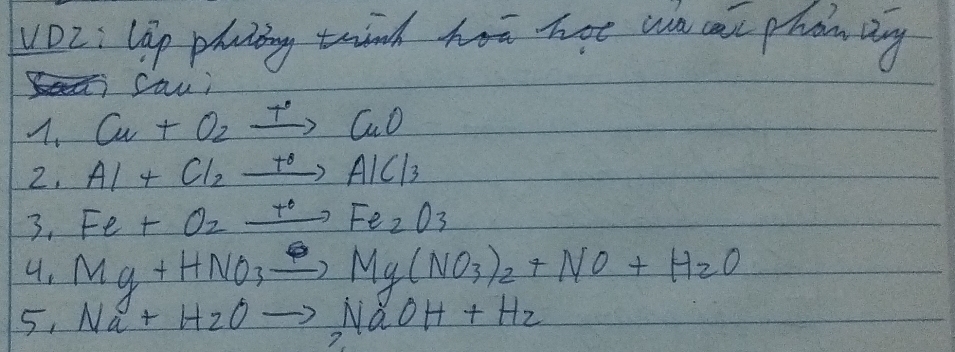 VD2: lập phương trình hoá học của các phản ứng
sau:
1. Cu + O2 t° → CuO
2. Al + Cl2 t° → AlCl3
3. Fe + O2 t° → Fe2O3
4. Mg + HNO3 → Mg(NO3)2 + NO + H2O
5. Na + H2O → NaOH + H2